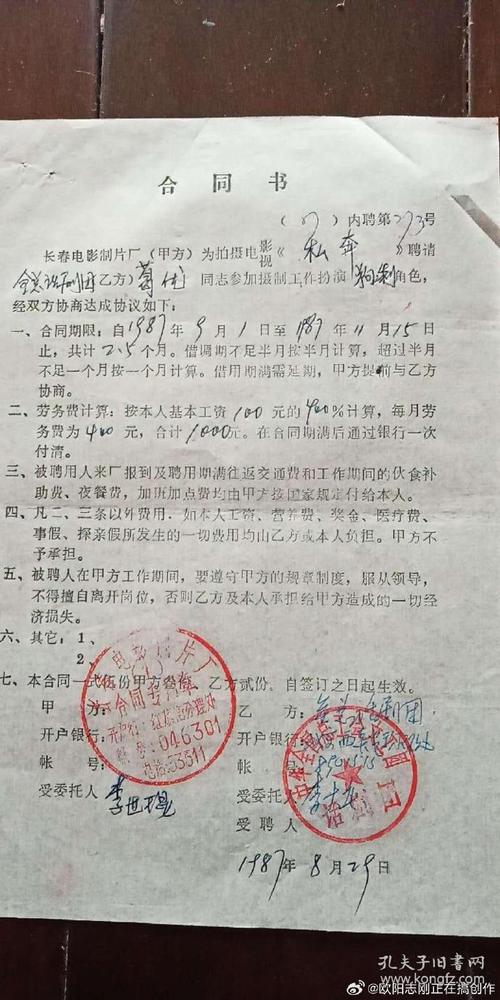 合同书
(87)内聘第273号
长春电影制片厂(甲方)为拍摄电影视《私奔》聘请
全总话剧团(乙方)葛优同志参加摄制工作扮演狗剩角色,
经双方协商达成协议如下:
一、合同期限:自1987年9月1日至1987年11月15日
止,共计2.5个月。借调期不足半月按半月计算,超过半月
不足一个月按一个月计算。借用期满需延期,甲方提前与乙方
协商。
二、劳务费计算:按本人基本工资100元的400%计算,每月劳
务费为400元,合计1000元。在合同期满后通过银行一次
付清。
三、被聘用人来厂报到及聘用期满往返交通费和工作期间的伙食补
助费、夜餐费,加班加点费均由甲方按国家规定付给本人。
四、凡二、三条以外费用,如本人工资、营养费、奖金、医疗费、
事假、探亲假所发生的一切费用均由乙方或本人负担。甲方不
予承担。
五、被聘人在甲方工作期间,要遵守甲方的规章制度,服从领导,
不得擅自离开岗位,否则乙方及本人承担给甲方造成的一切经
济损失。
六、其它:1、
2、
七、本合同一式伍份甲方叁份,乙方贰份,自签订之日起生效。
甲 方: 乙 方:全总话剧团
开户银行: 开户银行:
帐 号: 帐 号:
受委托人 李世琨 受委托人
受聘人
1987年8月29日
电影制片厂
合同专用章
046301
电话:53311
话剧团
孔夫子旧书网
@欧阳志刚正在搞创作